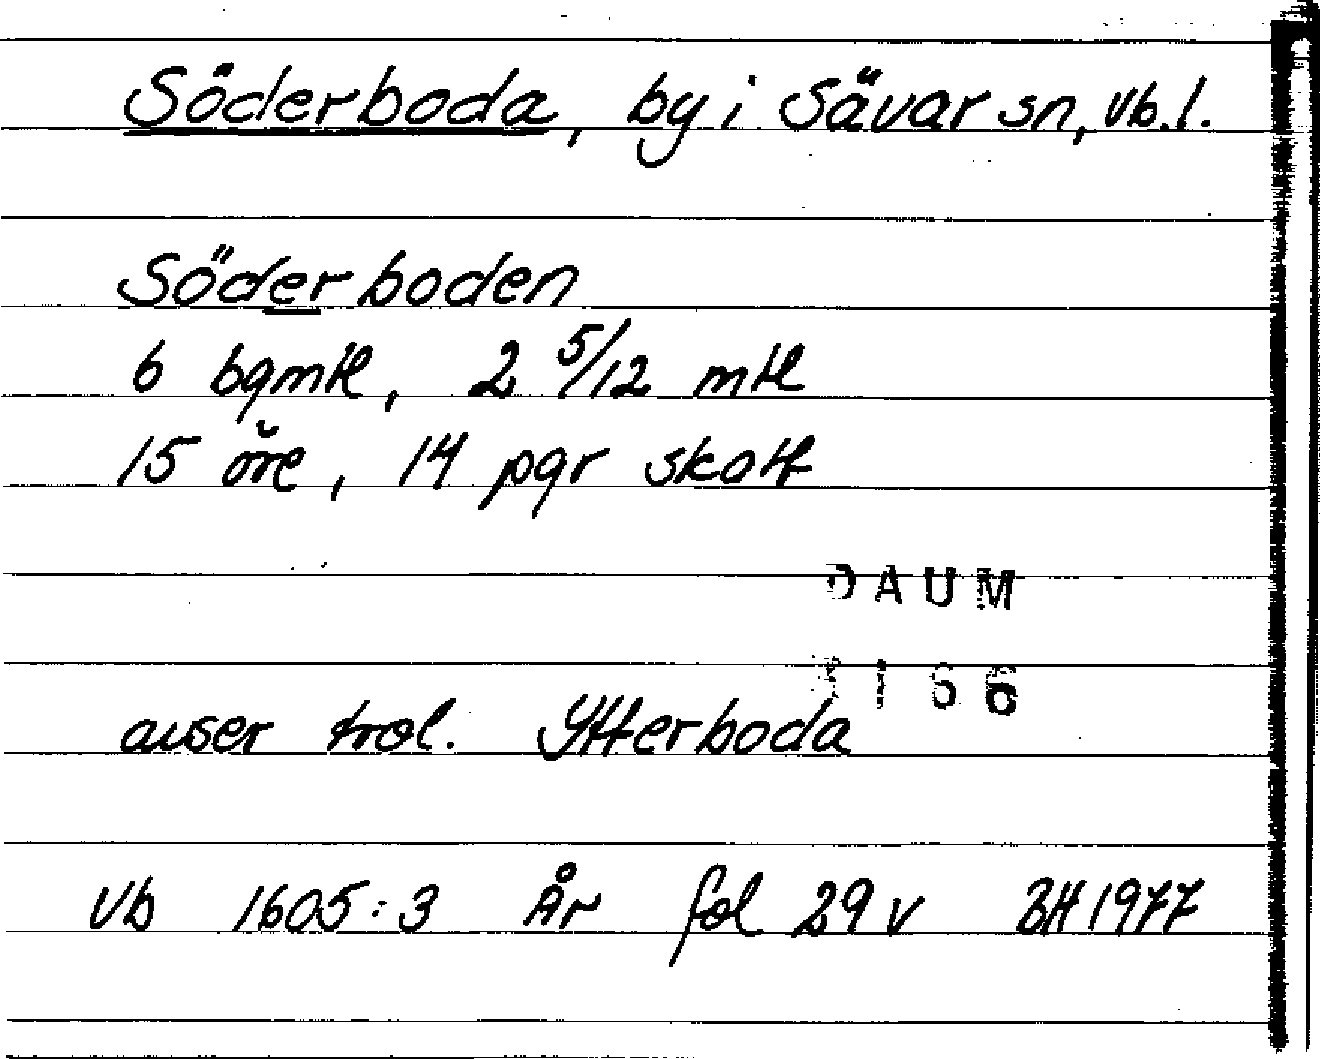 Söderboda, by i Sävar sn, Vb.l.
Söderboden
6 bqmtl, 2 5/12 mtl
15 öre, 14 pgr skatt
DAUM
3166
avser trol. Ytterboda
Vb 1605:3 År fol 29 v BH 1977